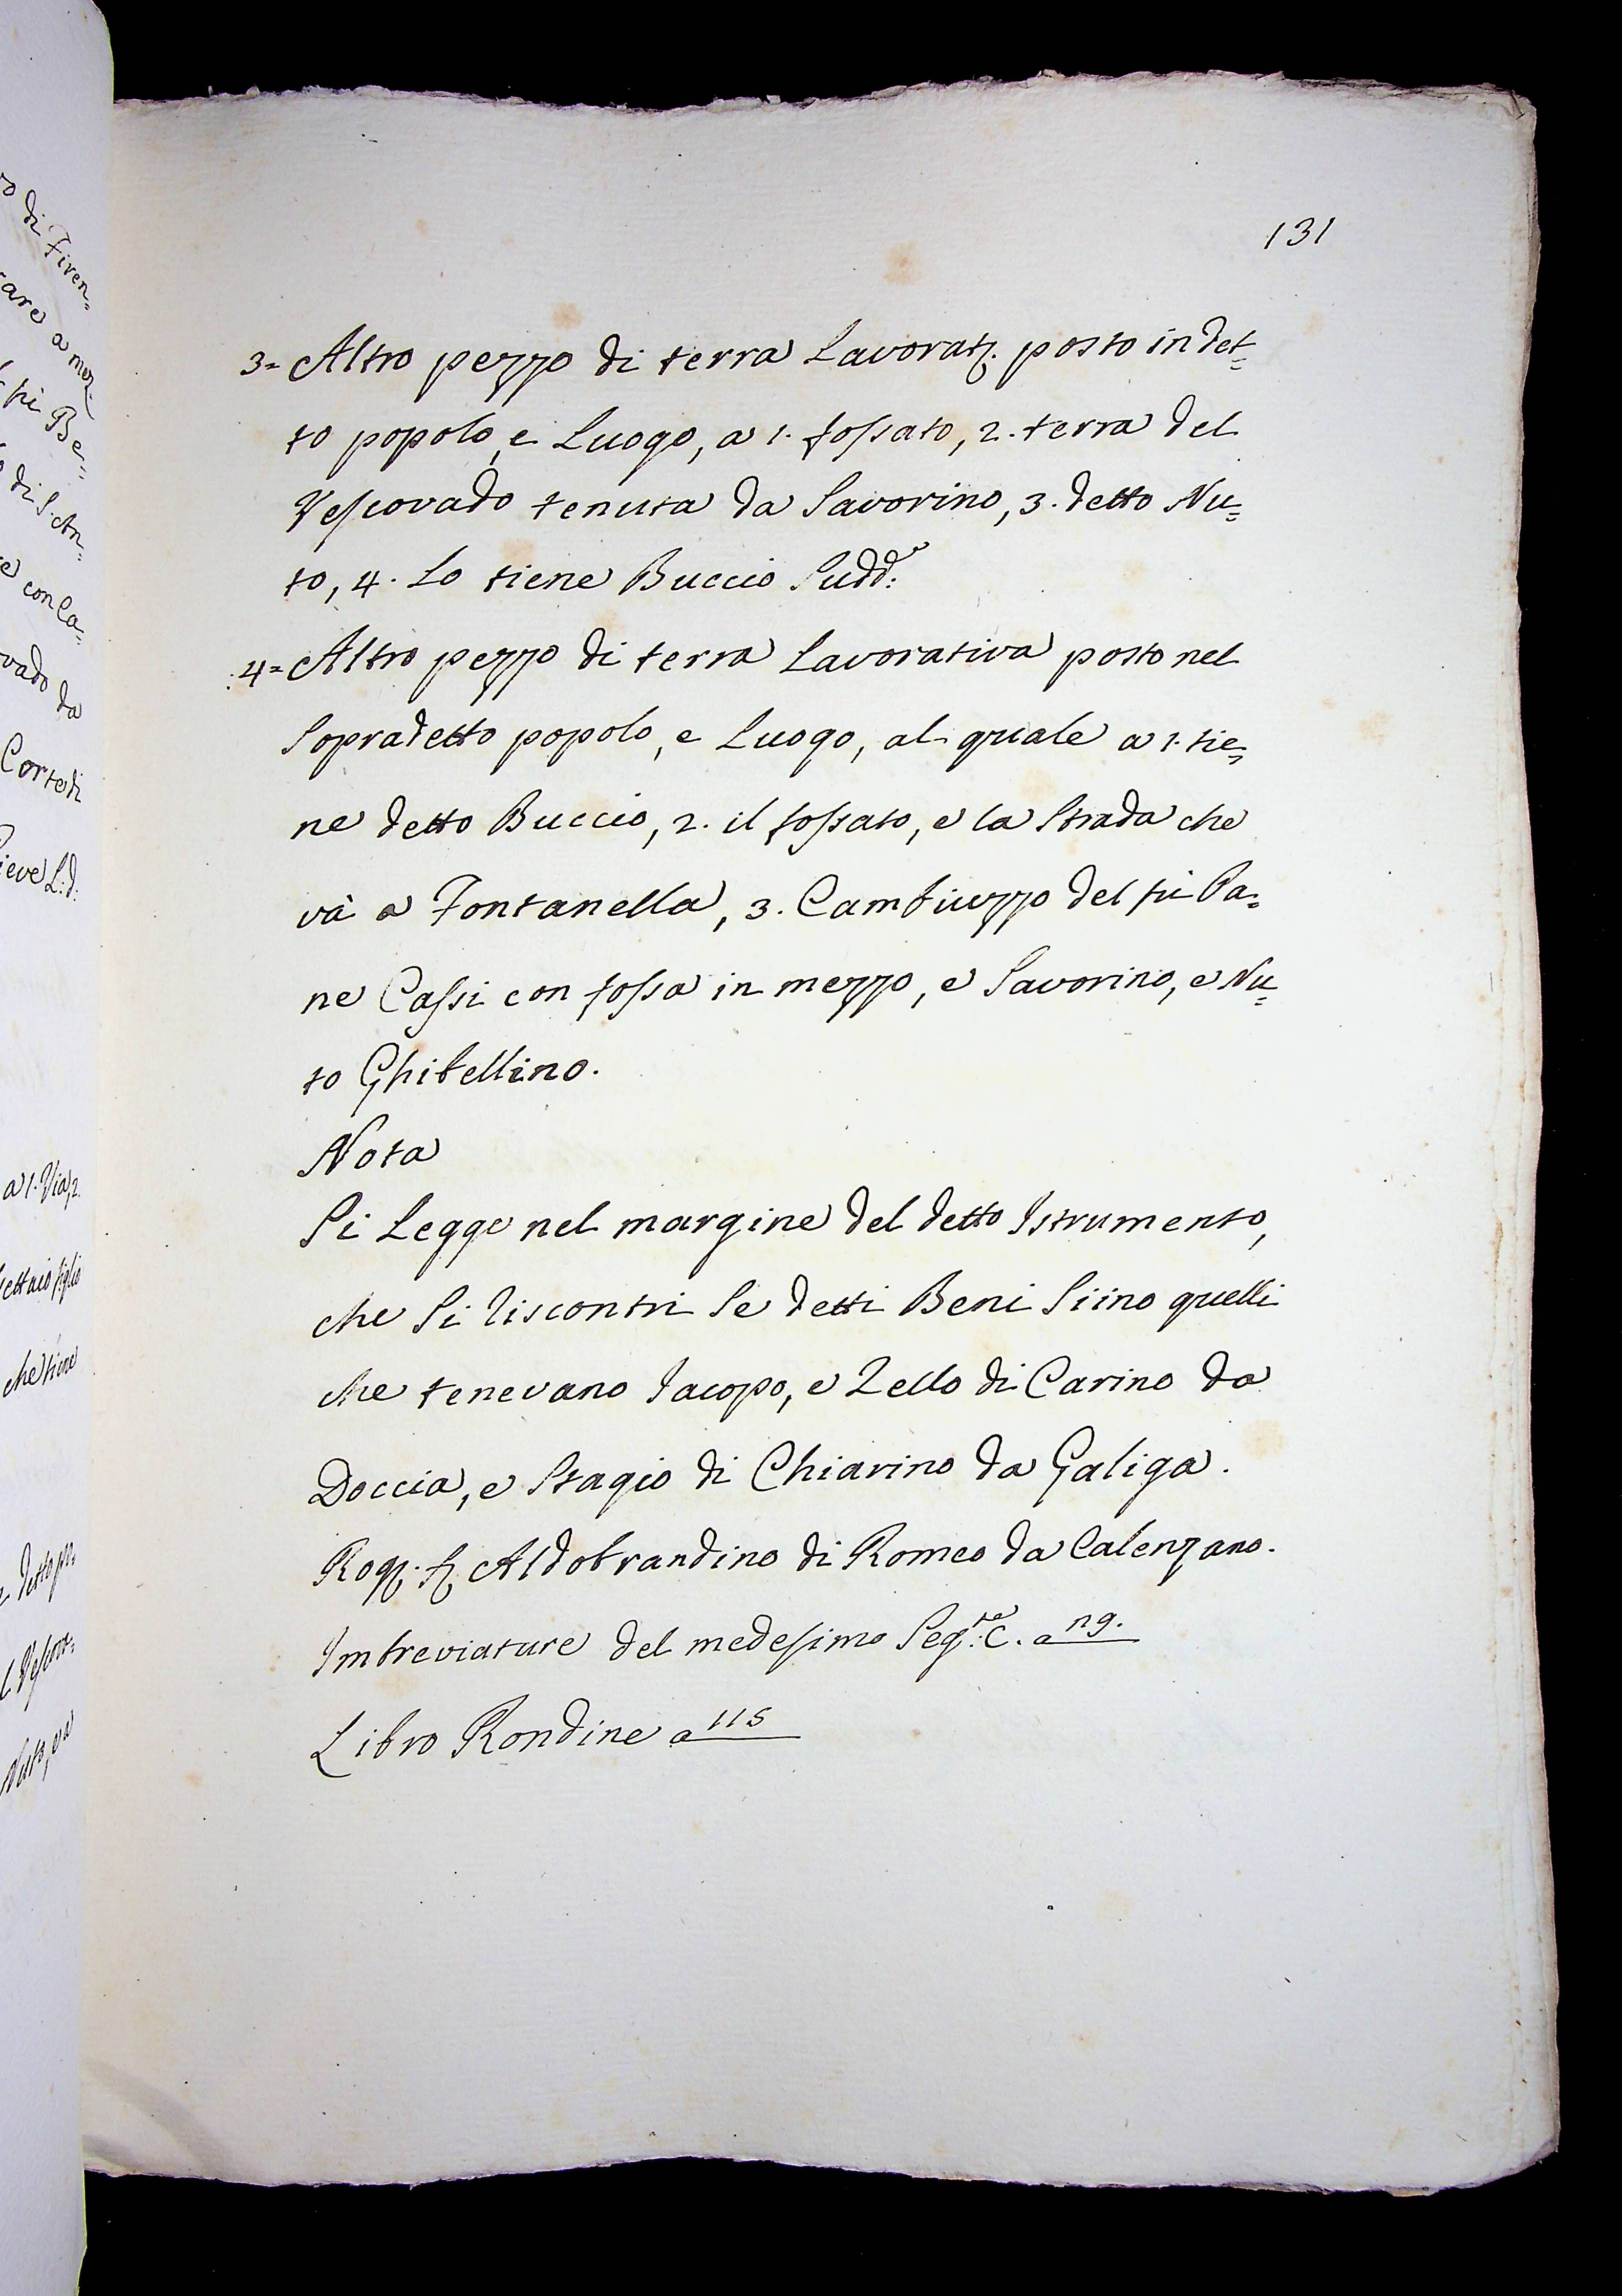 131
3= Altro pezzo di terra Lavorat. posto in det=
to popolo, e Luogo, a 1. fossato, 2. terra del
Vescovado tenuta da Savorino, 3. detto Nu=
to, 4. Lo tiene Buccio Sudd.º
4= Altro pezzo di terra Lavorativa posto nel
Sopradetto popolo, e Luogo, al quale a 1. tie=
ne detto Buccio, 2. il fossato, e la Strada che
và a Fontanella, 3. Cambiuzzo del fù Pa=
ne Cassi con fossa in mezzo, e Savorino, e Nu=
to Ghibellino.
Nota
Si Legge nel margine del detto Istrumento,
che Si riscontri Se detti Beni Siino quelli
che tenevano Jacopo, e Lello di Carino da
Doccia, e Stagio di Chiarino da Galiga.
Rog. Aldobrandino di Romeo da Calenzano.
Imbreviature del medesimo Seg.te C. a 119.
Libro Rondine a 115